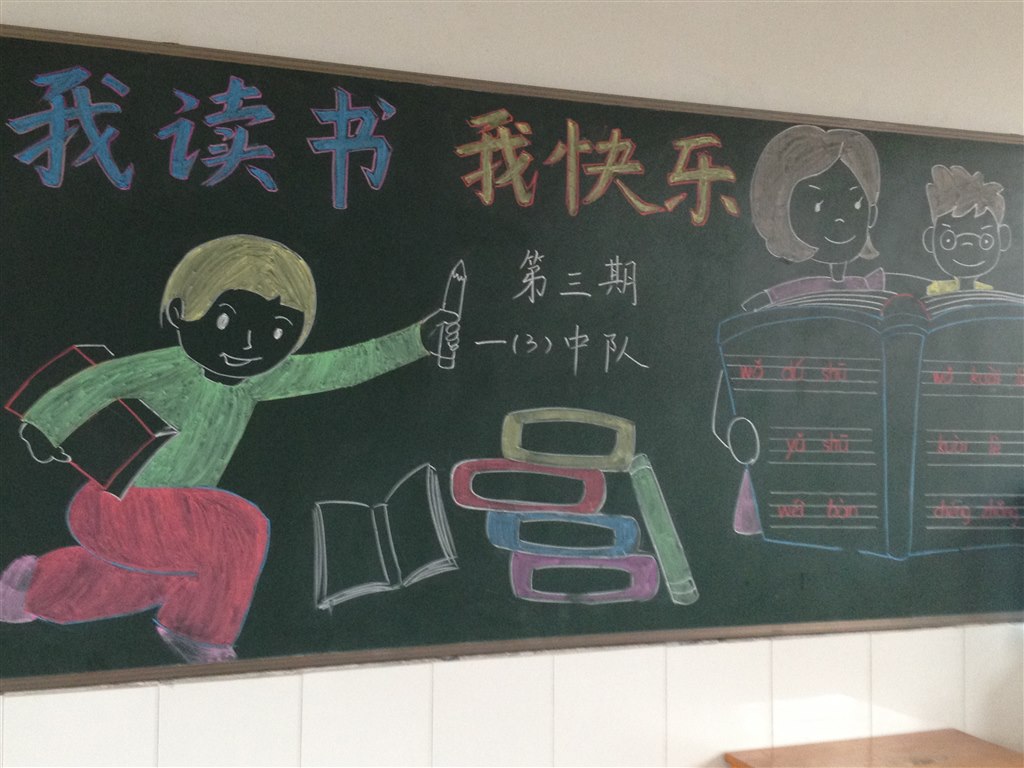 我读书 我快乐
第三期
一(3)中队
wǒ dú shū
yǔ shū
wéi bàn
wǒ kuài
kuài lè